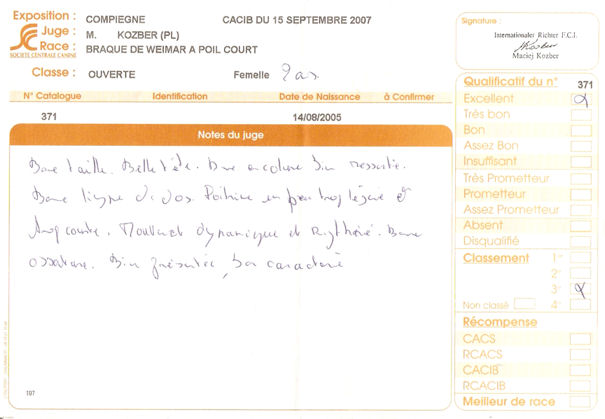 Exposition : COMPIEGNE CACIB DU 15 SEPTEMBRE 2007
Juge : M. KOZBER (PL)
Race : BRAQUE DE WEIMAR A POIL COURT
SOCIÉTÉ CENTRALE CANINE
Classe : OUVERTE Femelle 2 ans
N° Catalogue Identification Date de Naissance à Confirmer
371 14/08/2005
Notes du juge
Bonne taille. Belle tête. Bonne encolure bien ressortie.
Bonne ligne de dos. Poitrine un peu trop légère et
trop courte. Mouvement dynamique et rythmé. Bonne
ossature. Bien présentée, bon caractère
107
Signature :
Internationaler Richter F.C.I.
Kozber
Maciej Kozber
Qualificatif du n° 371
Excellent
Très bon
Bon
Assez Bon
Insuffisant
Très Prometteur
Prometteur
Assez Prometteur
Absent
Disqualifié
Classement 1er
2e
3e
Non classé 4e
Récompense
CACS
RCACS
CACIB
RCACIB
Meilleur de race